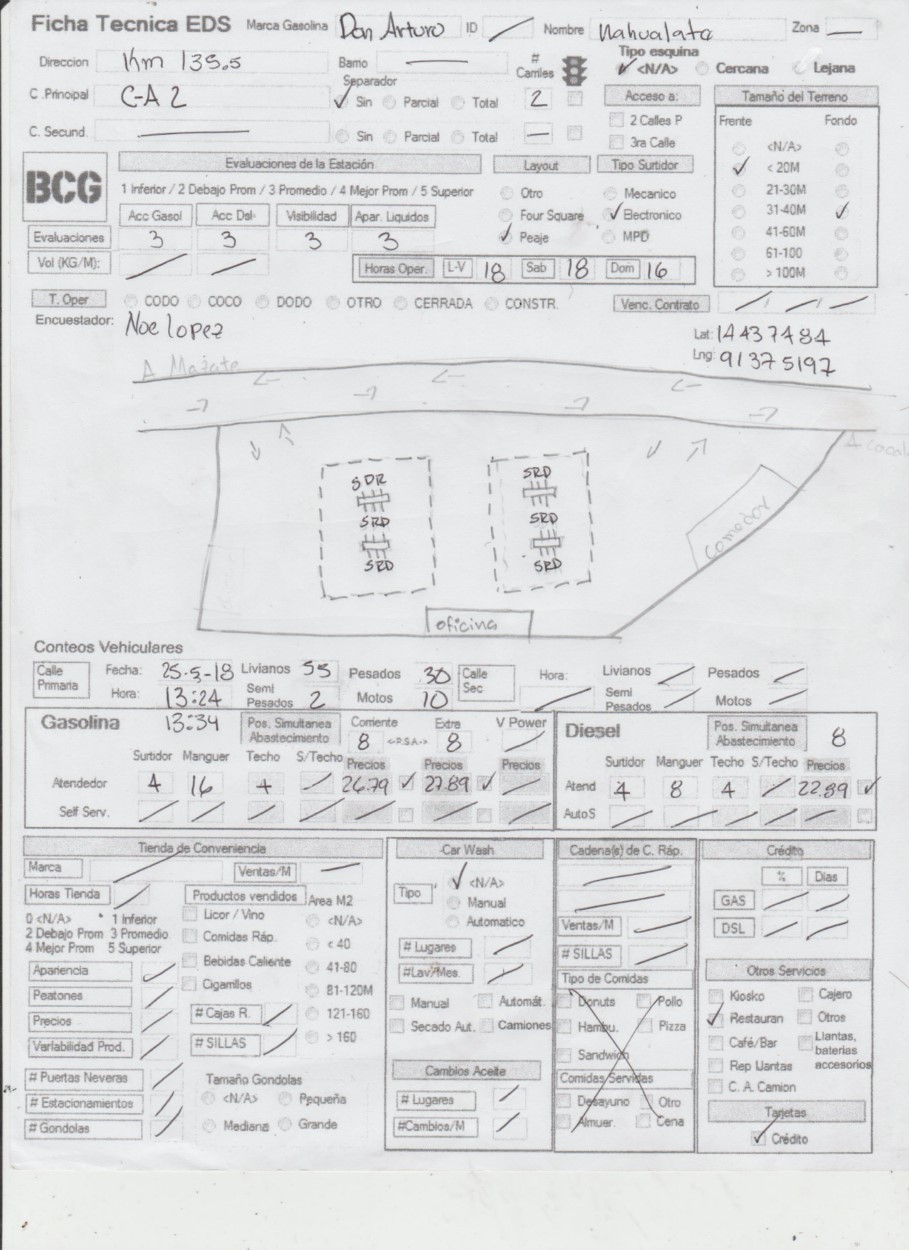 Ficha Tecnica EDS Marca Gasolina Don Arturo ID / Nombre Nahualate Zona —
Direccion Km 135.5 Barrio — # Carriles Tipo esquina ✓ <N/A> Cercana Lejana
Separador
C .Principal C-A 2 ✓ Sin Parcial Total 2 Acceso a: Tamaño del Terreno
C. Secund. — Sin Parcial Total — 2 Calles P Frente Fondo
3ra Calle <N/A>
BCG Evaluaciones de la Estación Layout Tipo Surtidor ✓ < 20M
1 Inferior / 2 Debajo Prom / 3 Promedio / 4 Mejor Prom / 5 Superior Otro Mecanico 21-30M
Acc Gasol Acc Dsl- Visibilidad Apar. Liquidos Four Square ✓ Electronico 31-40M ✓
Evaluaciones 3 3 3 3 ✓ Peaje MPD 41-60M
Vol (KG/M): / / Horas Oper. L-V 18 Sab 18 Dom 16 61-100
> 100M
T. Oper CODO COCO DODO OTRO CERRADA CONSTR. Venc. Contrato / / /
Encuestador: Noe lopez
Lat: 14437484
Lng: 91375197
A Mazate
A Cocale
SDR SRD
SRD SRD
SRD SRD
Comedor
oficina
Conteos Vehiculares
Calle Primaria Fecha: 25-5-18 Livianos 55 Pesados 30 Calle Sec Hora: / Livianos / Pesados /
Hora: 13:24 Semi Pesados 2 Motos 10 Semi Pesados / Motos /
Gasolina 13:34 Pos. Simultanea Abastecimiento Corriente 8 <-P.S.A.-> Extra 8 V Power / Diesel Pos. Simultanea Abastecimiento 8
Surtidor Manguer Techo S/Techo Precios Precios Precios Surtidor Manguer Techo S/Techo Precios
Atendedor 4 16 4 / 26.79 ✓ 27.89 ✓ / Atend 4 8 4 / 22.89 ✓
Self Serv. / / / / / / / AutoS / / / / /
Tienda de Conveniencia Car Wash Cadena(s) de C. Ráp. Crédito
Marca / Ventas/M / ✓ <N/A> % Dias
Horas Tienda / Productos vendidos Area M2 Tipo Manual GAS / /
0 <N/A> * 1 Inferior Licor / Vino <N/A> Automatico Ventas/M / DSL / /
2 Debajo Prom 3 Promedio Comidas Ráp. < 40 # Lugares / # SILLAS /
4 Mejor Prom 5 Superior Bebidas Caliente 41-80 #Lav/Mes. / Tipo de Comidas Otros Servicios
Apariencia / Cigarrillos 81-120M Manual Automát. Donuts Pollo Kiosko Cajero
Peatones / # Cajas R. / 121-160 Secado Aut. Camiones Hambu. Pizza ✓ Restauran Otros
Precios / # SILLAS / > 160 Sandwich Café/Bar Llantas, baterias accesorios
Variabilidad Prod. / Cambios Aceite Comidas Servidas Rep Llantas
# Puertas Neveras / Tamaño Gondolas # Lugares / Desayuno Otro C. A. Camion
# Estacionamientos / <N/A> Pequeña #Cambios/M / Almuer. Cena Tarjetas
# Gondolas / Mediana Grande ✓ Crédito